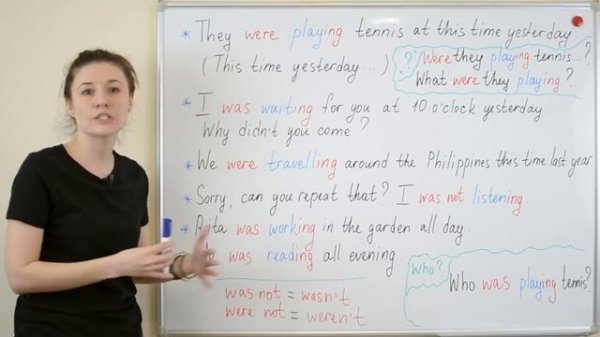 * They were playing tennis at this time yesterday
(This time yesterday...)
? Were they playing tennis...?
What were they playing?
* I was waiting for you at 10 o'clock yesterday.
Why didn't you come?
* We were travelling around the Philippines this time last year
* Sorry, can you repeat that? I was not listening.
* Rita was working in the garden all day.
was reading all evening.
was not = wasn't
were not = weren't
Who?
Who was playing tennis?